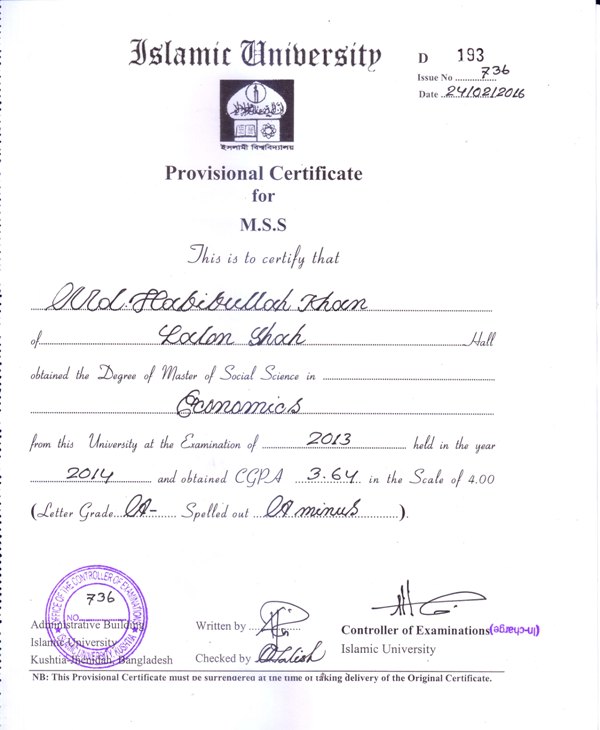 Islamic University
D 193
Issue No 736
Date 24/02/2016
ইসলামী বিশ্ববিদ্যালয়
Provisional Certificate
for
M.S.S
This is to certify that
Md. Habibullah Khan
of Lalon Shah Hall
obtained the Degree of Master of Social Science in
Economics
from this University at the Examination of 2013 held in the year
2014 and obtained CGPA 3.64 in the Scale of 4.00
(Letter Grade A- Spelled out A minus).
OFFICE OF THE CONTROLLER OF EXAMINATIONS
NO. 736
ISLAMIC UNIVERSITY KUSHTIA
Administrative Building
Islamic University
Kushtia-Jhenidah, Bangladesh
Written by
Checked by
Controller of Examinations (In-charge)
Islamic University
NB: This Provisional Certificate must be surrendered at the time of taking delivery of the Original Certificate.